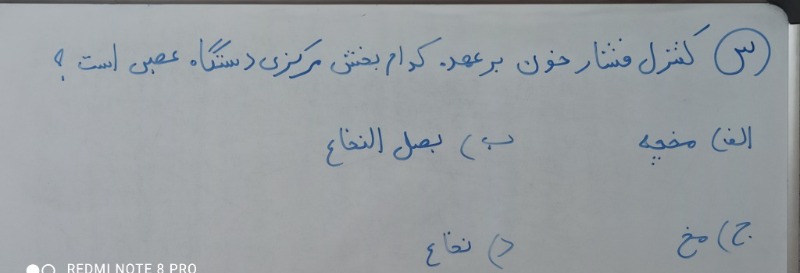 س) کنترل فشار خون بر عهده کدام بخش مرکزی دستگاه عصبی است ؟
الف) مخچه ب) بصل النخاع
ج) مخ د) نخاع
REDMI NOTE 8 PRO